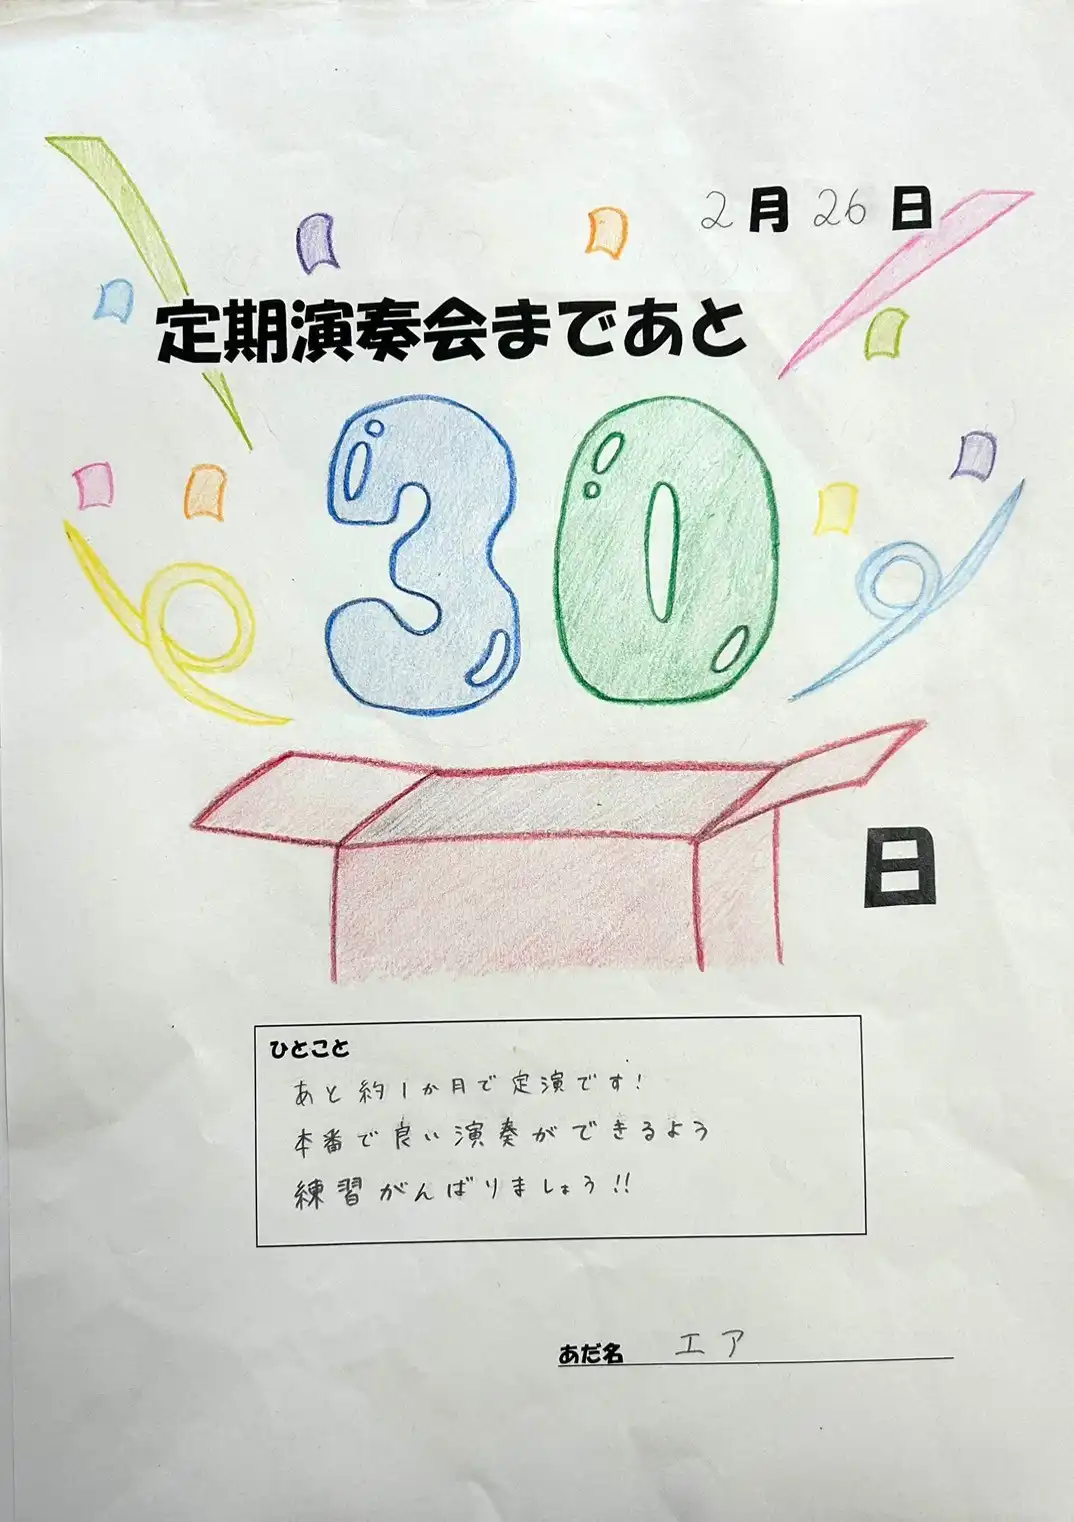 2月26日
定期演奏会まであと
30
日
ひとこと
あと約1か月で定演です!
本番で良い演奏ができるよう
練習がんばりましょう!!
あだ名 エア